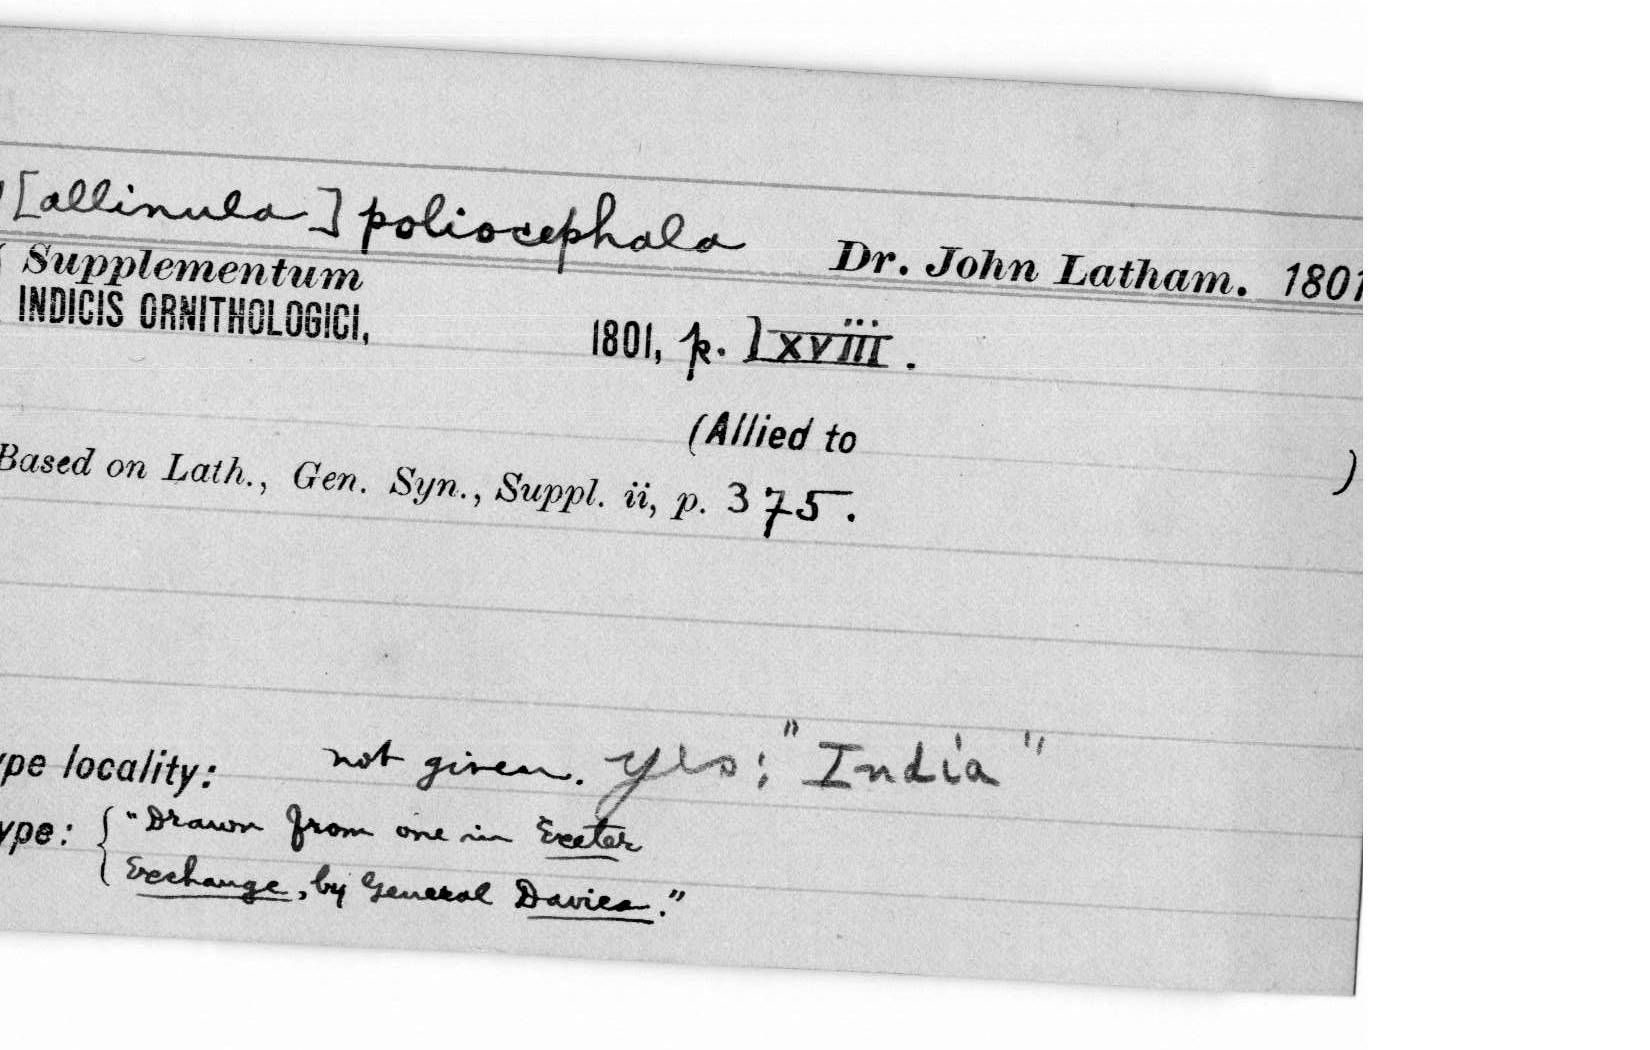 [allinula] poliocephala Dr. John Latham. 1801
Supplementum
INDICIS ORNITHOLOGICI, 1801, p. lxviii.
(Allied to )
Based on Lath., Gen. Syn., Suppl. ii, p. 375.
ype locality: not given. Yes; "India"
ype: { "Drawn from one in Exeter
Exchange, by General Davies."